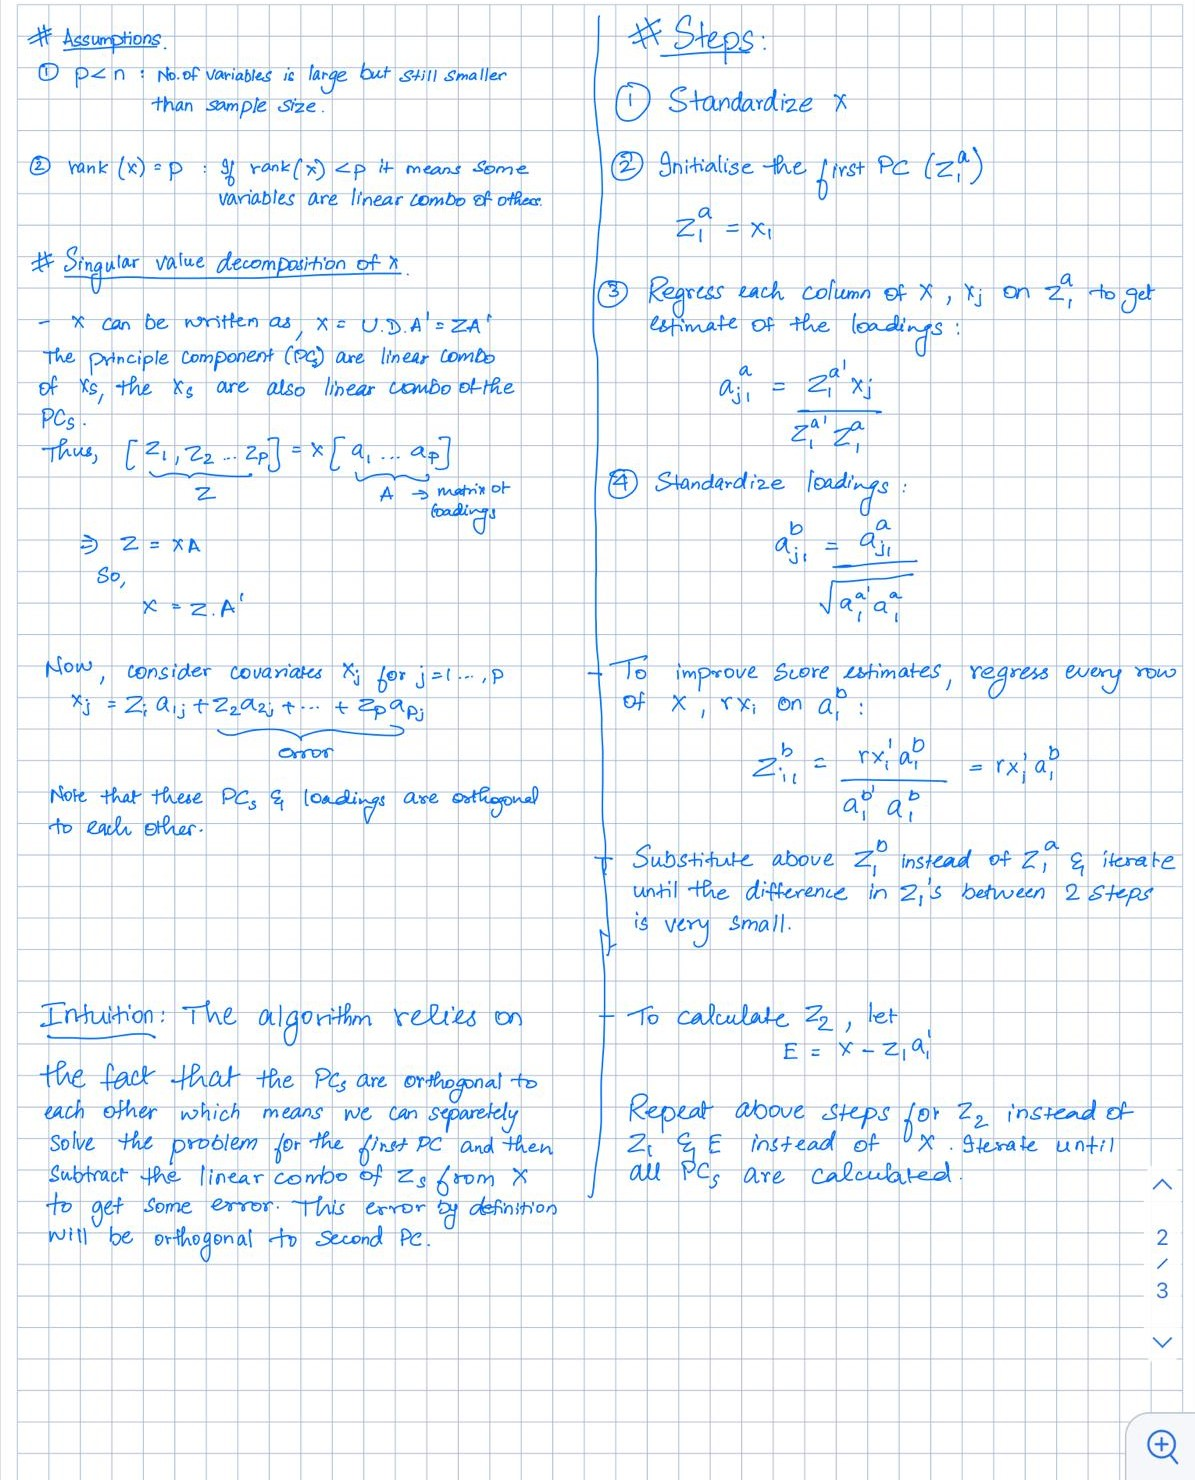 # Assumptions.
① p<n : No. of variables is large but still smaller
than sample size.
② rank (x) = p : If rank(x) <p it means some
variables are linear combo of others.
# Singular value decomposition of x.
- x can be written as, x = U.D.A' = ZA'
The principle component (PCs) are linear combo
of xs, the xs are also linear combo of the
PCs.
Thus, [Z₁, Z₂ ... Zp] = x [a₁ ... ap]
Z A → matrix of
loadings
⇒ Z = XA
So,
X = Z.A'
Now, consider covariates xj for j=1 ..., p
xj = Z₁ a₁j + Z₂a₂j + ... + Zp apj
error
Note that these PCs & loadings are orthogonal
to each other.
Intuition: The algorithm relies on
the fact that the PCs are orthogonal to
each other which means we can separetely
solve the problem for the first PC and then
subtract the linear combo of Zs from X
to get some error. This error by definition
will be orthogonal to second PC.
# Steps:
① Standardize x
② Initialise the first PC (Z₁ᵃ)
Z₁ᵃ = x₁
③ Regress each column of X, xj on Z₁ᵃ to get
estimate of the loadings :
aj₁ᵃ = Z₁ᵃ' xj
Z₁ᵃ' Z₁ᵃ
④ Standardize loadings :
aj₁ᵇ = aj₁ᵃ
√a₁ᵃ' a₁ᵃ
- To improve score estimates, regress every row
of X, rxi on a₁ᵇ :
Zi₁ᵇ = rxi' a₁ᵇ = rxi' a₁ᵇ
a₁ᵇ' a₁ᵇ
- Substitute above Z₁ᵇ instead of Z₁ᵃ & iterate
until the difference in Z₁'s between 2 steps
is very small.
- To calculate Z₂, let
E = X - Z₁ a₁'
Repeat above steps for Z₂ instead of
Z₁ & E instead of X. Iterate until
all PCs are calculated.
2
/
3